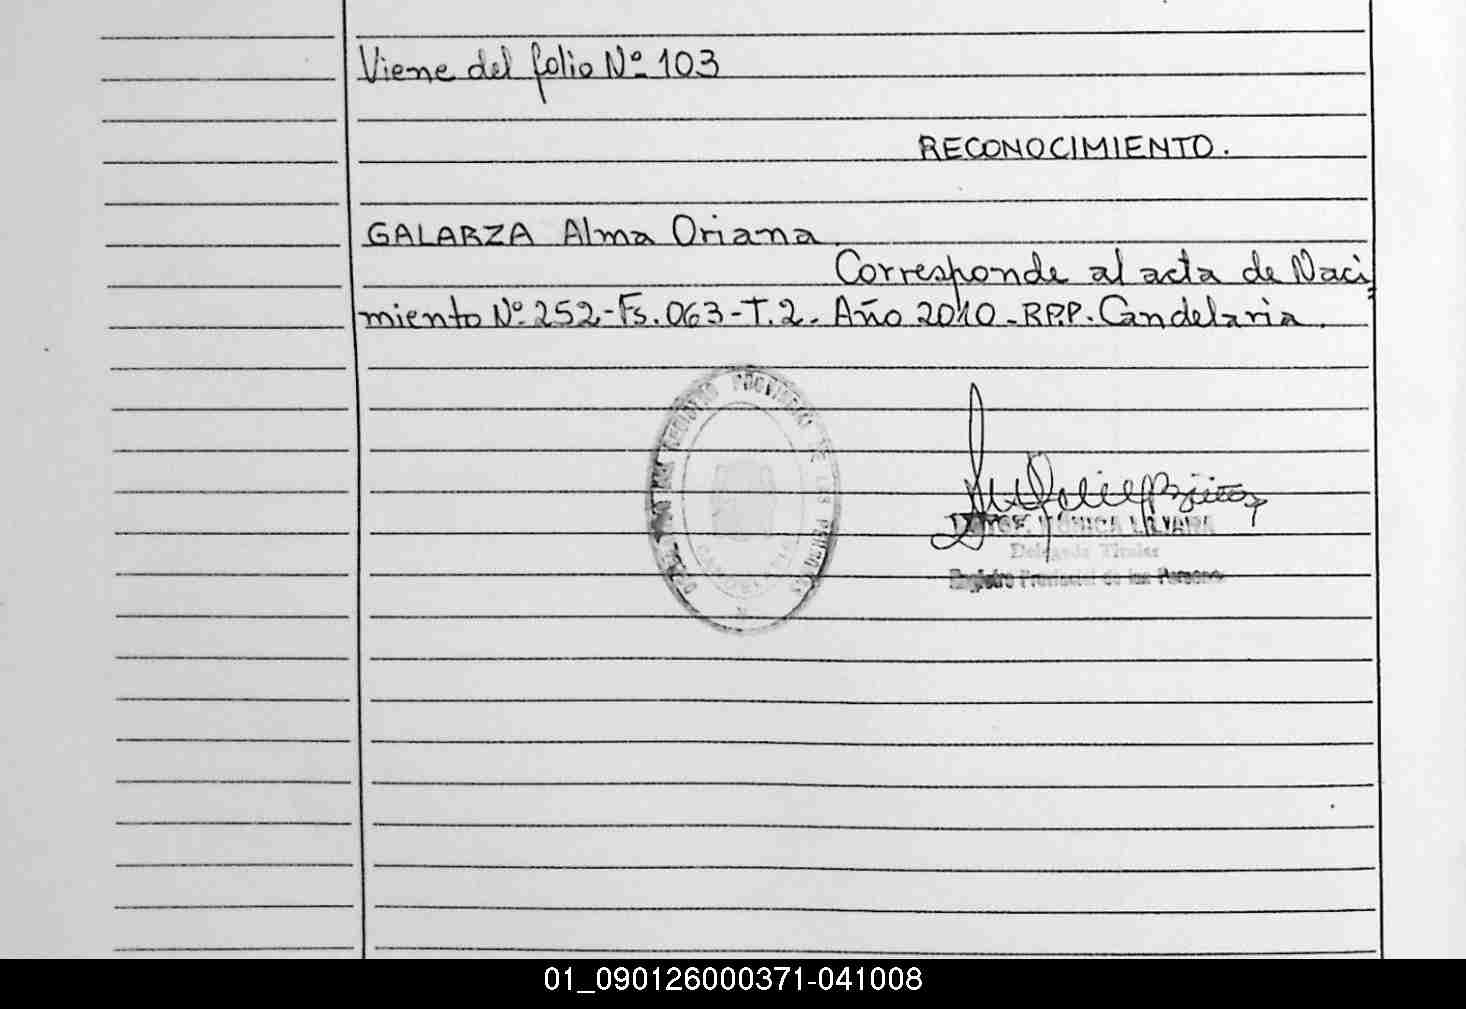 Viene del folio Nº 103
RECONOCIMIENTO.
GALARZA Alma Oriana
Corresponde al acta de Naci
miento Nº 252-Fs. 063-T. 2. Año 2010-RP.P. Candelaria.
REGISTRO PROVINCIAL DE LAS PERSONAS
CANDELARIA
MONICA LILIANA
Delegada Titular
Registro Provincial de las Personas
01_090126000371-041008